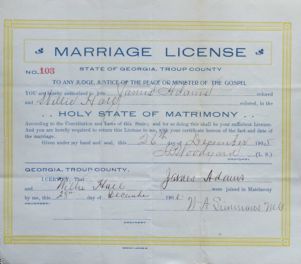 MARRIAGE LICENSE
STATE OF GEORGIA, TROUP COUNTY
No. 103
TO ANY JUDGE, JUSTICE OF THE PEACE OR MINISTER OF THE GOSPEL
YOU are hereby authorized to join James Adams colored
and Willie Hall colored, in the
HOLY STATE OF MATRIMONY
According to the Constitution and laws of this State; and for so doing this shall be your sufficient License.
And you are hereby required to return this License to me with your certificate hereon of the fact and date
of the marriage.
Given under my hand and seal, this 26th day December
Woodyard (L. S.)
GEORGIA, TROUP COUNTY.
I CERTIFY, That James Adams
and Willie Hall were joined in Matrimony
by me, this day of December 190
W A Simmons